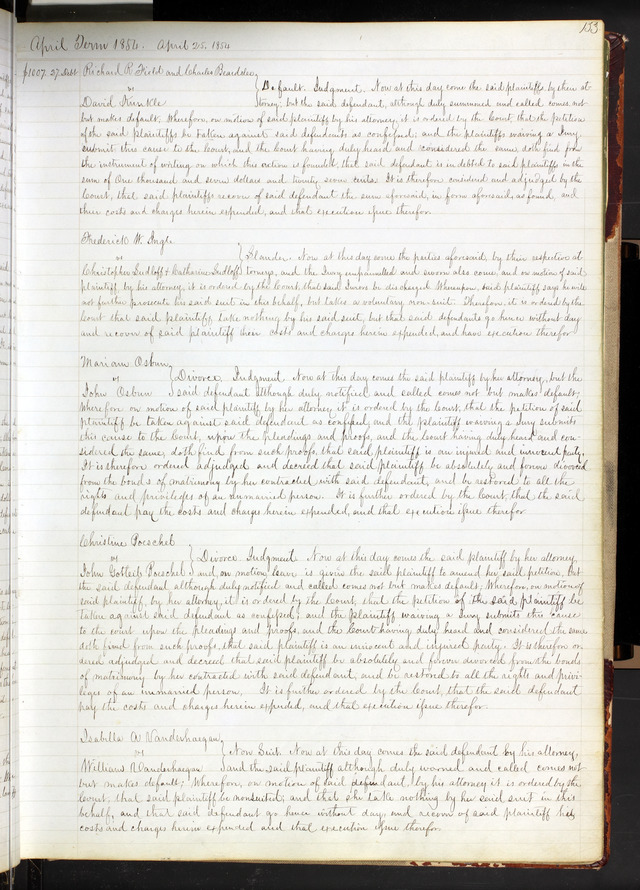 153
April Term 1854. April 25. 1854
$1007.27 Debt Richard R. Field and Charles Beardslee
vs } Default. Judgment. Now at this day come the said plaintiffs, by their at-
David Kunkle torney; but the said defendant, although duly summoned and called comes not
but makes default. Wherefore, on motion of said plaintiffs by his attorney, it is ordered by the Court, that the petition
of the said plaintiffs be taken against said defendants as confessed; and the plaintiffs waiving a Jury
submit this cause to the Court, and the Court having duly heard and considered the same doth find from
the instrument of writing on which this action is founded, that said defendant is indebted to said plaintiffs in the
sum of One thousand and seven dollars and twenty seven cents. It is therefore considered and adjudged by the
Court, that said plaintiffs recover of said defendant the sum aforesaid, in form aforesaid, as found, and
their costs and charges herein expended, and that execution issue therefor.
Frederick W. Ingle
vs } Slander. Now at this day come the parties aforesaid, by their respective at-
Christopher Ludloff & Catharine Ludloff torneys, and the Jury empannelled and sworn also come, and on motion of said
plaintiff by his attorney, it is ordered by the Court, that said Jurors be discharged. Whereupon, said plaintiff says he will
not further prosecute his said suit in this behalf, but takes a voluntary non-suit. Therefore, it is ordered by the
Court that said plaintiff, take nothing by his said suit, but that said defendants go hence without day
and recover of said plaintiff their costs and charges herein expended, and have execution therefor
Mariam Osburn
vs } Divorce. Judgment. Now at this day comes the said plaintiff by her attorney, but the
John Osburn said defendant although duly notified and called comes not but makes default;
Wherefore on motion of said plaintiff by her attorney it is ordered by the Court, that the petition of said
plaintiff be taken against said defendant as confessed, and the plaintiff waiving a Jury submits
this cause to the Court, upon the pleadings and proofs, and the Court having duly heard and con-
sidered the same, doth find from such proofs, that said plaintiff is an injured and innocent party.
It is therefore ordered adjudged and decreed that said plaintiff be absolutely and forever divorced
from the bonds of matrimony by her contracted with said defendant, and be restored to all the
rights and privileges of an unmarried person. It is further ordered by the Court, that the said
defendant pay the costs and charges herein expended, and that execution issue therefor
Christine Poeschel
vs } Divorce. Judgment. Now at this day comes the said plaintiff by her attorney,
John Gotleib Poeschel and, on motion, leave is given the said plaintiff to amend her said petition, but
the said defendant although duly notified and called comes not but makes default; Wherefore, on motion of
said plaintiff, by her attorney, it is ordered by the Court, that the petition of the said plaintiff be
taken against said defendant as confessed; and the plaintiff waiving a Jury submits this cause
to the court upon the pleadings and proofs, and the Court having duly heard and considered the same
doth find from such proofs, that said plaintiff is an innocent and injured party. It is therefore or-
dered adjudged and decreed that said plaintiff be absolutely and forever divorced from the bonds
of matrimony by her contracted with said defendant, and be restored to all the rights and privi-
leges of an unmarried person. It is further ordered by the Court, that the said defendant
pay the costs and charges herein expended, and that execution issue therefor.
Isabella A Vanderhaegan,
vs } Non Suit. Now at this day comes the said defendant by his attorney,
William Vanderhaegan and the said plaintiff although duly warned and called comes not
but makes default; Wherefore, on motion of said defendant, by his attorney it is ordered by the
Court, that said plaintiff be nonsuited, and that she take nothing by her said suit in this
behalf, and that said defendant go hence without day, and recover of said plaintiff his
costs and charges herein expended and that execution issue therefor.